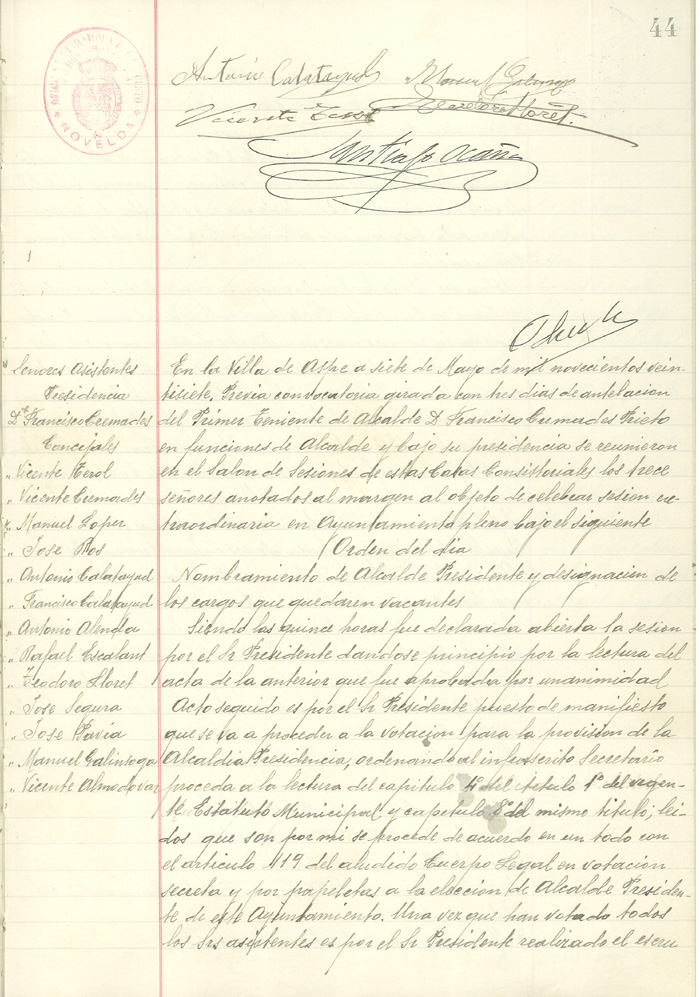 44
NOVELDA
Antonio Calatayud Manuel Galinsoga
Vicente Terol Teodoro Lloret.
Santiago Ocaña
Señores Asistentes
Presidencia
D. Francisco Cremades
Concejales
" Vicente Terol
" Vicente Cremades
" Manuel Lopez
" Jose Ros
" Antonio Calatayud
" Francisco Calatayud
" Antonio Alenda
" Rafael Escalant
" Teodoro Lloret
" Jose Segura
" Jose Pavia
" Manuel Galinsoga
" Vicente Almodovar
En la Villa de Aspe a siete de Mayo de mil novecientos vein-
tisiete, Previa convocatoria girada con tres dias de antelacion
del Primer Teniente de Alcalde D. Francisco Cremades Prieto
en funciones de Alcalde y bajo su presidencia se reunieron
en el Salon de Sesiones de estas Casas Consistoriales los trece
señores anotados al margen al objeto de celebrar sesion ex-
traordinaria en Ayuntamiento pleno bajo el siguiente
Orden del dia
Nombramiento de Alcalde Presidente y designacion de
los cargos que quedaren vacantes
Siendo las quince horas fue declarada abierta la sesion
por el Sr Presidente dandose principio por la lectura del
acta de la anterior que fue aprobada por unanimidad
Acto seguido es por el Sr Presidente puesto de manifiesto
que se va a proceder a la votacion para la provision de la
Alcaldia Presidencia, ordenando al infrascrito Secretario
proceda a la lectura del capitulo 4º del titulo 1º del vigen-
te Estatuto Municipal y capitulo del mismo titulo; lei-
dos que son por mi se procede de acuerdo en un todo con
el articulo 119 del aludido Cuerpo Legal en votacion
secreta y por papeletas a la eleccion de Alcalde Presiden-
te de este Ayuntamiento. Una vez que han votado todos
los Srs asistentes es por el Sr Presidente realizado el escru